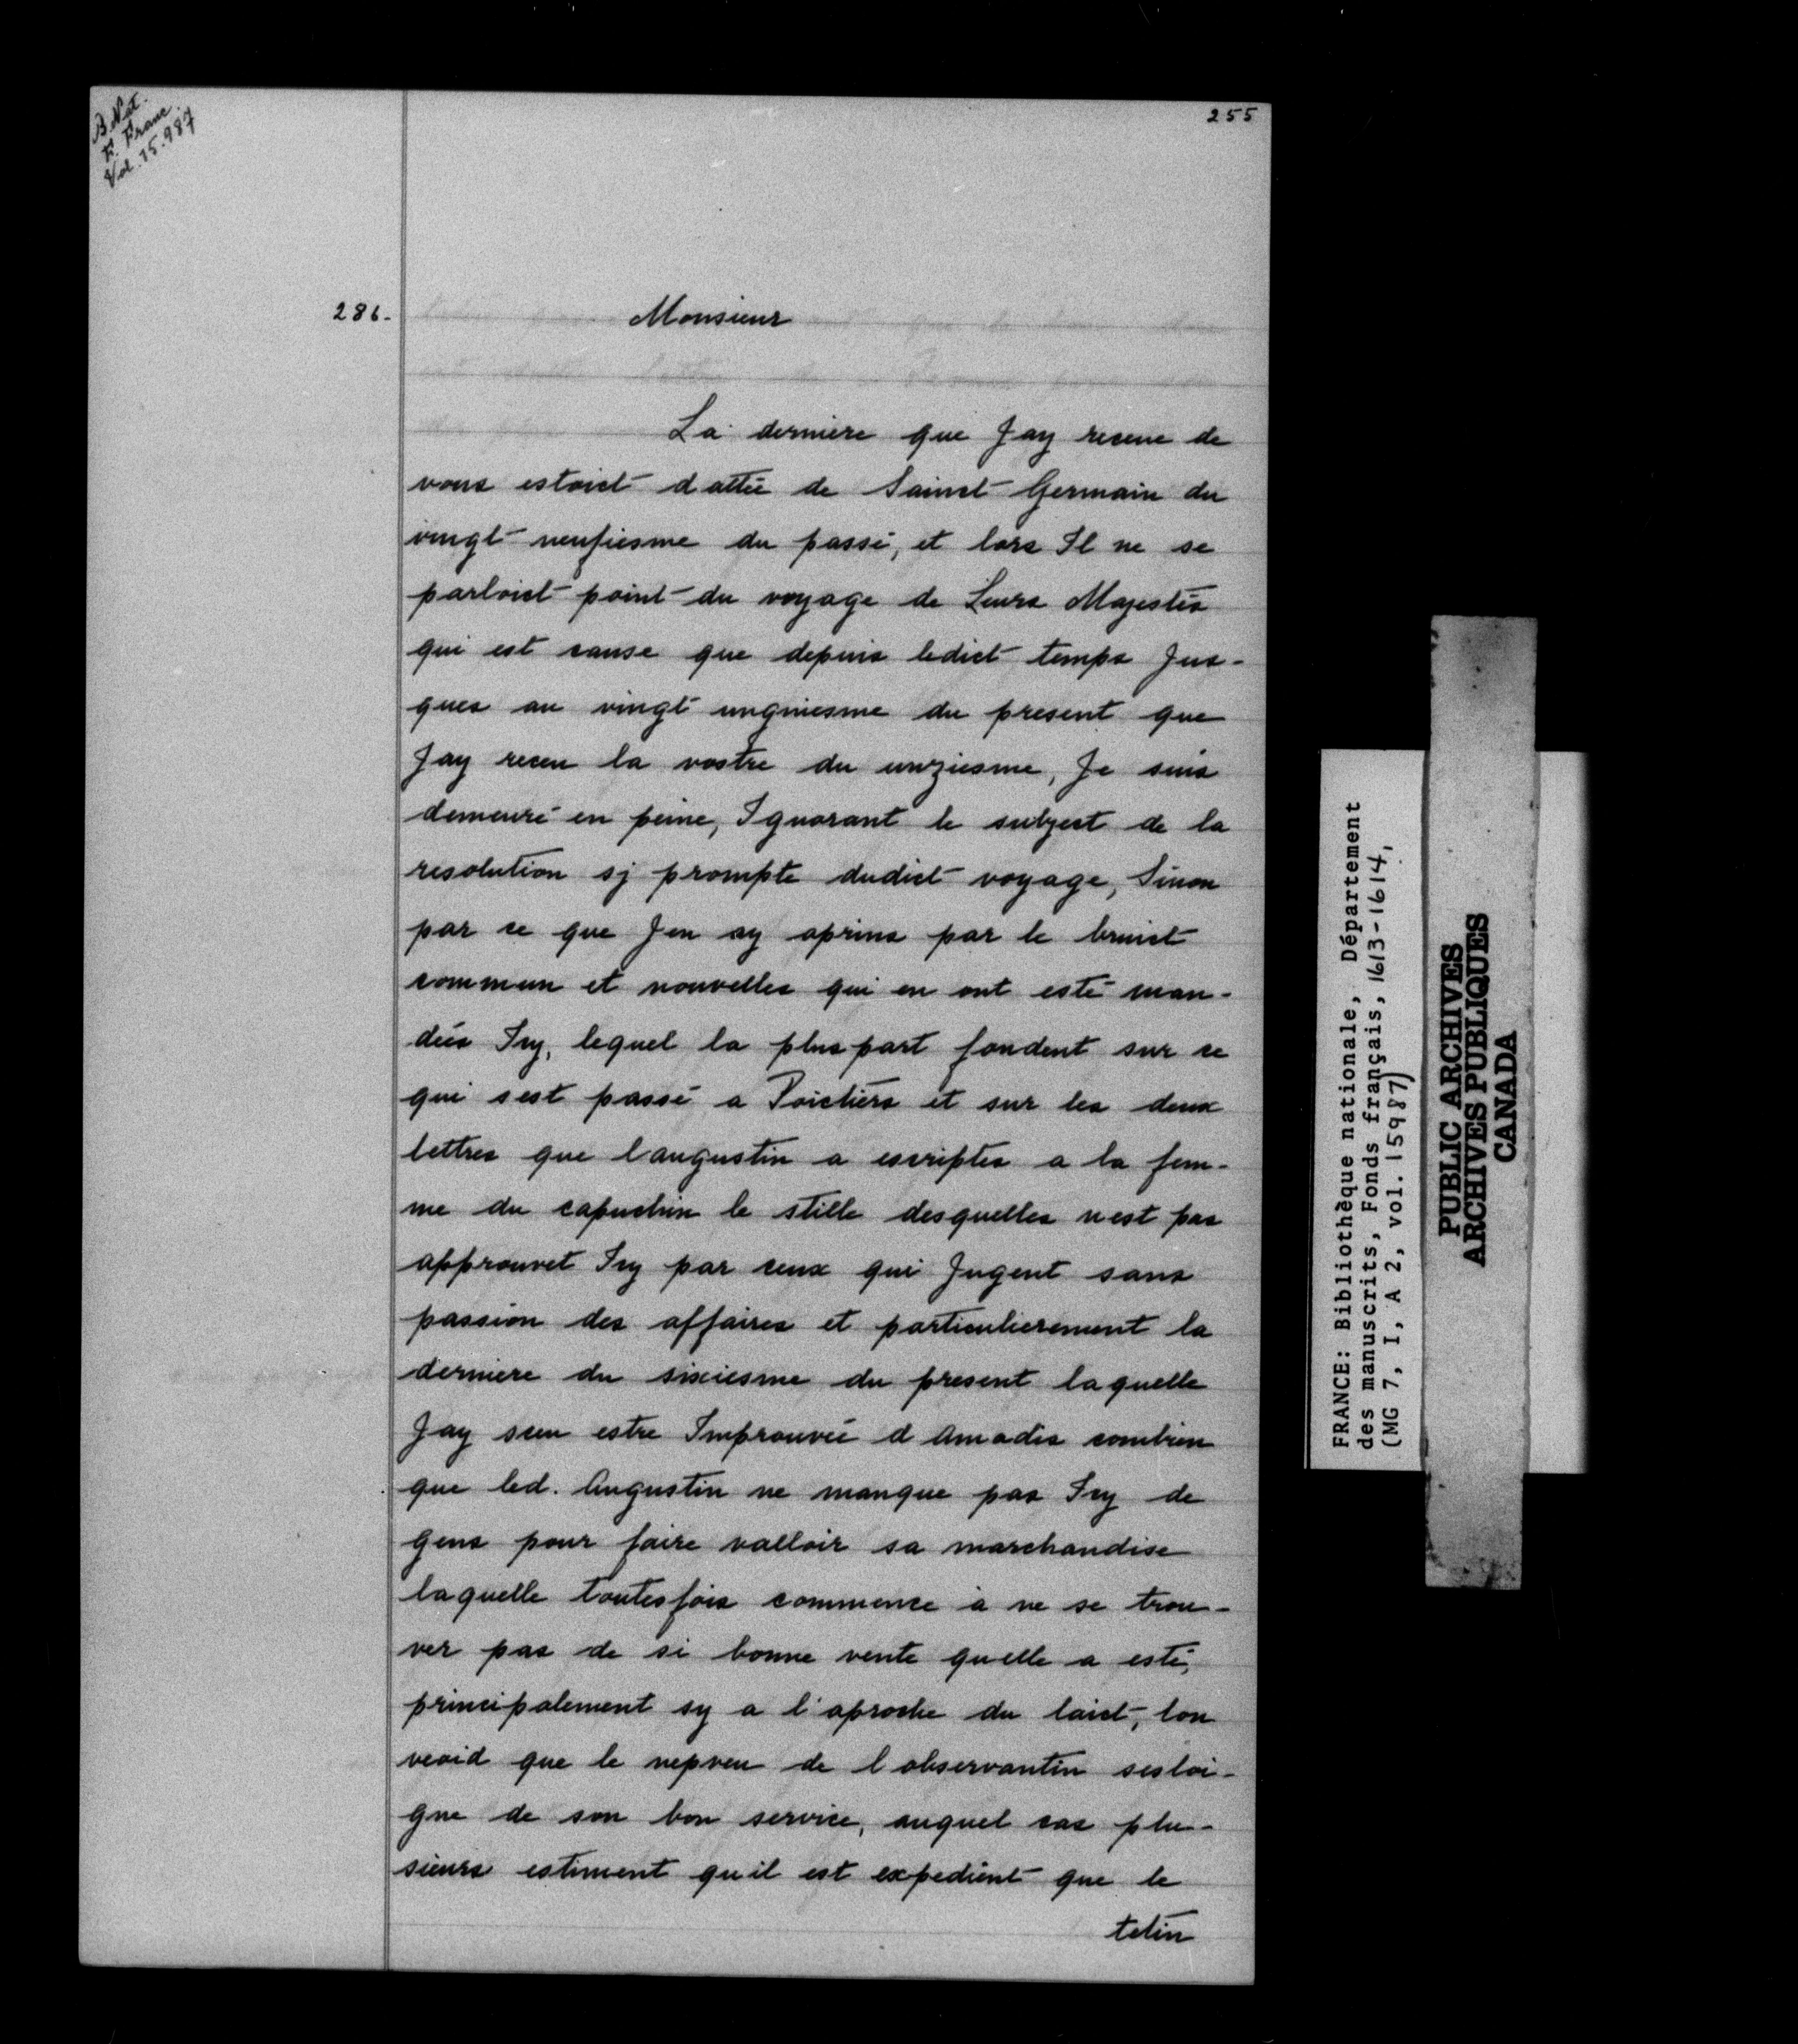 B. Nat.
F. Franc.
Vol. 15.987
255
286.
Monsieur
La derniere que Jay receue de
vous estoict dattée de Sainct Germain du
vingt neufiesme du passé, et lors Il ne se
parloict point du voyage de Leurs Majestés
qui est cause que depuis ledict temps Jus-
ques au vingt ungniesme du present que
Jay receu la vostre du unziesme, Je suis
demeuré en peine, Ignorant le subject de la
resolution sj prompte dudict voyage, Sinon
par ce que Jen ay aprins par le bruict
commun et nouvelles qui en ont esté man-
dées Icy, lequel la pluspart fondent sur ce
qui sest passé a Poictiers et sur les deux
lettres que laugustin a escriptes a la fem-
me du capuchin le stille desquelles nest pas
approuvet Icy par ceux qui Jugent sans
passion des affaires et particulierement la
derniere du sixiesme du present laquelle
Jay sceu estre Improuvée d Amadis combien
que led. Augustin ne manque pas Icy de
gens pour faire valloir sa marchandise
laquelle toutesfois commence à ne se trou-
ver pas de si bonne vente quelle a esté,
principalement sy a l'aproche du laict, lon
veoid que le nepveu de l observantin sesloi-
gne de son bon service, auquel cas plu-
sieurs estiment quil est expedient que le
tetin
FRANCE: Bibliothèque nationale, Département
des manuscrits, Fonds français, 1613-1614,
(MG 7, I, A 2, vol. 15987)
PUBLIC ARCHIVES
ARCHIVES PUBLIQUES
CANADA